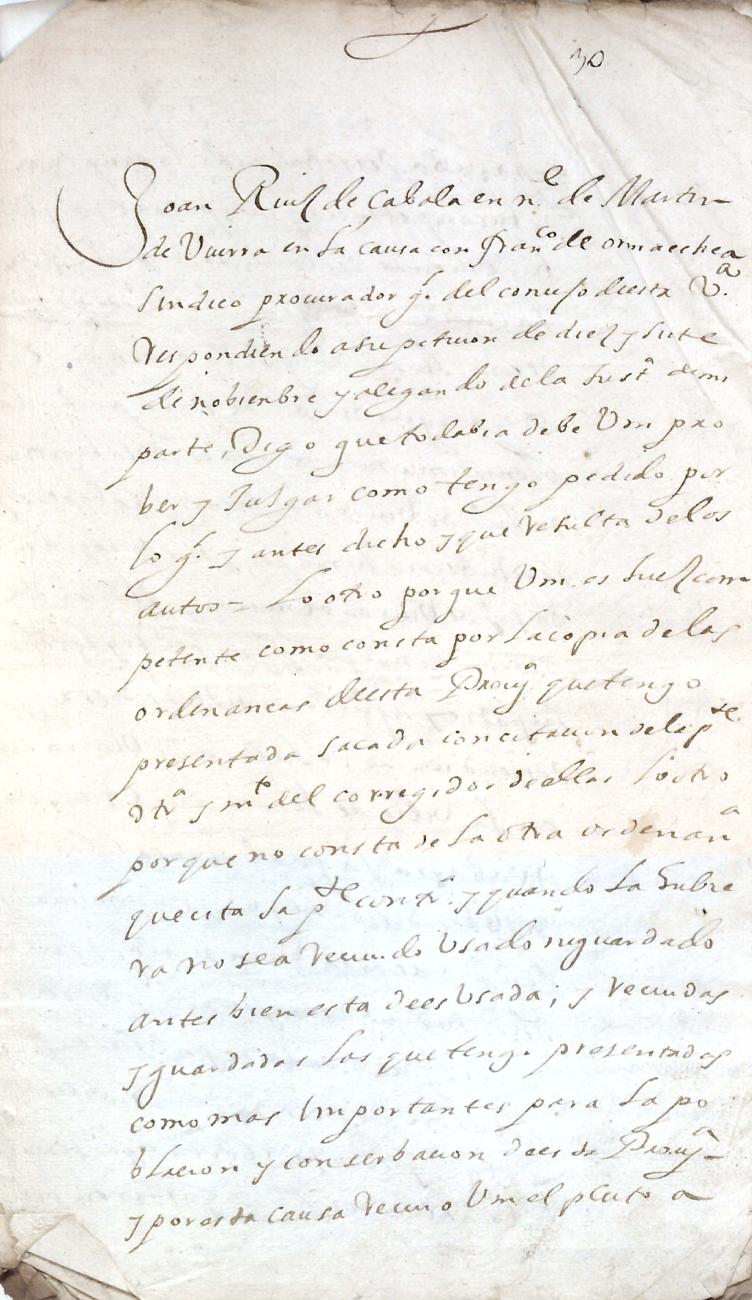 30
Joan Ruiz de Çabala en nᵉ. de Martin
de Vierra en la causa con franᶜᵒ de ormaechea
sindico procurador gˡ. del consejo desta Vª.
respondiendo a su peticion de diez y siete
de nobienbre y alegando de la Justª de mi
parte, Digo que todabia debe Vm pro
ber y Julgar como tengo pedido por
lo gˡ. y antes dicho y que resulta de los
autos = Lo otro porque Vm. es Juez com
petente como consta por la copia de las
ordenancas desta Prouª que tengo
presentada sacada con citacion de la pᵗᵉ.
otrª y mᵗᵒ del corregidor de ellas Lo otro
porque no consta de la otra ordenanª
que cita la pᵗᵉ contrª. y quando la hubie
ra no sea recivido Usado ni guardado
antes bien esta desusada; y recividas
y guardadas las que tengo presentadas
como mas Importantes para la po
blacion y conserbacion de esta Prouª
y por esta causa recivio Vm el pleito a